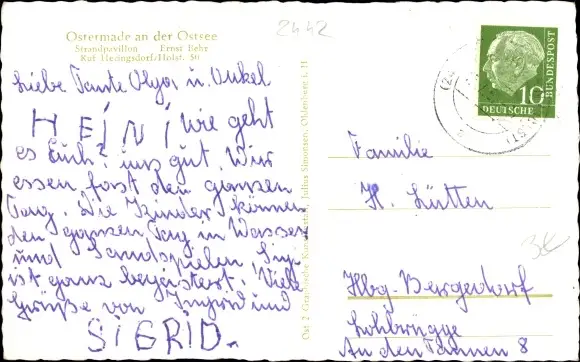 2442
Ostermade an der Ostsee
Strandpavillon Ernst Behr
Ruf Heringsdorf/Holst. 56
Liebe Tante Olga u. Onkel
HEINI, wie geht
es Euch? uns gut. Wir
essen fast den ganzen
Tag. Die Kinder können
den ganzen Tag in Wasser
und Sand spielen. Sigi
ist ganz begeistert. Viele
Grüße von Ingrid und
SIGRID.
Ost 2 Graphische Kunstanstalt, Julius Simonsen, Oldenburg i. H
10
DEUTSCHE
BUNDESPOST
Familie
H. Lütten
3€
Hbg-Bergedorf
Lohbrügge
An den Tannen 8